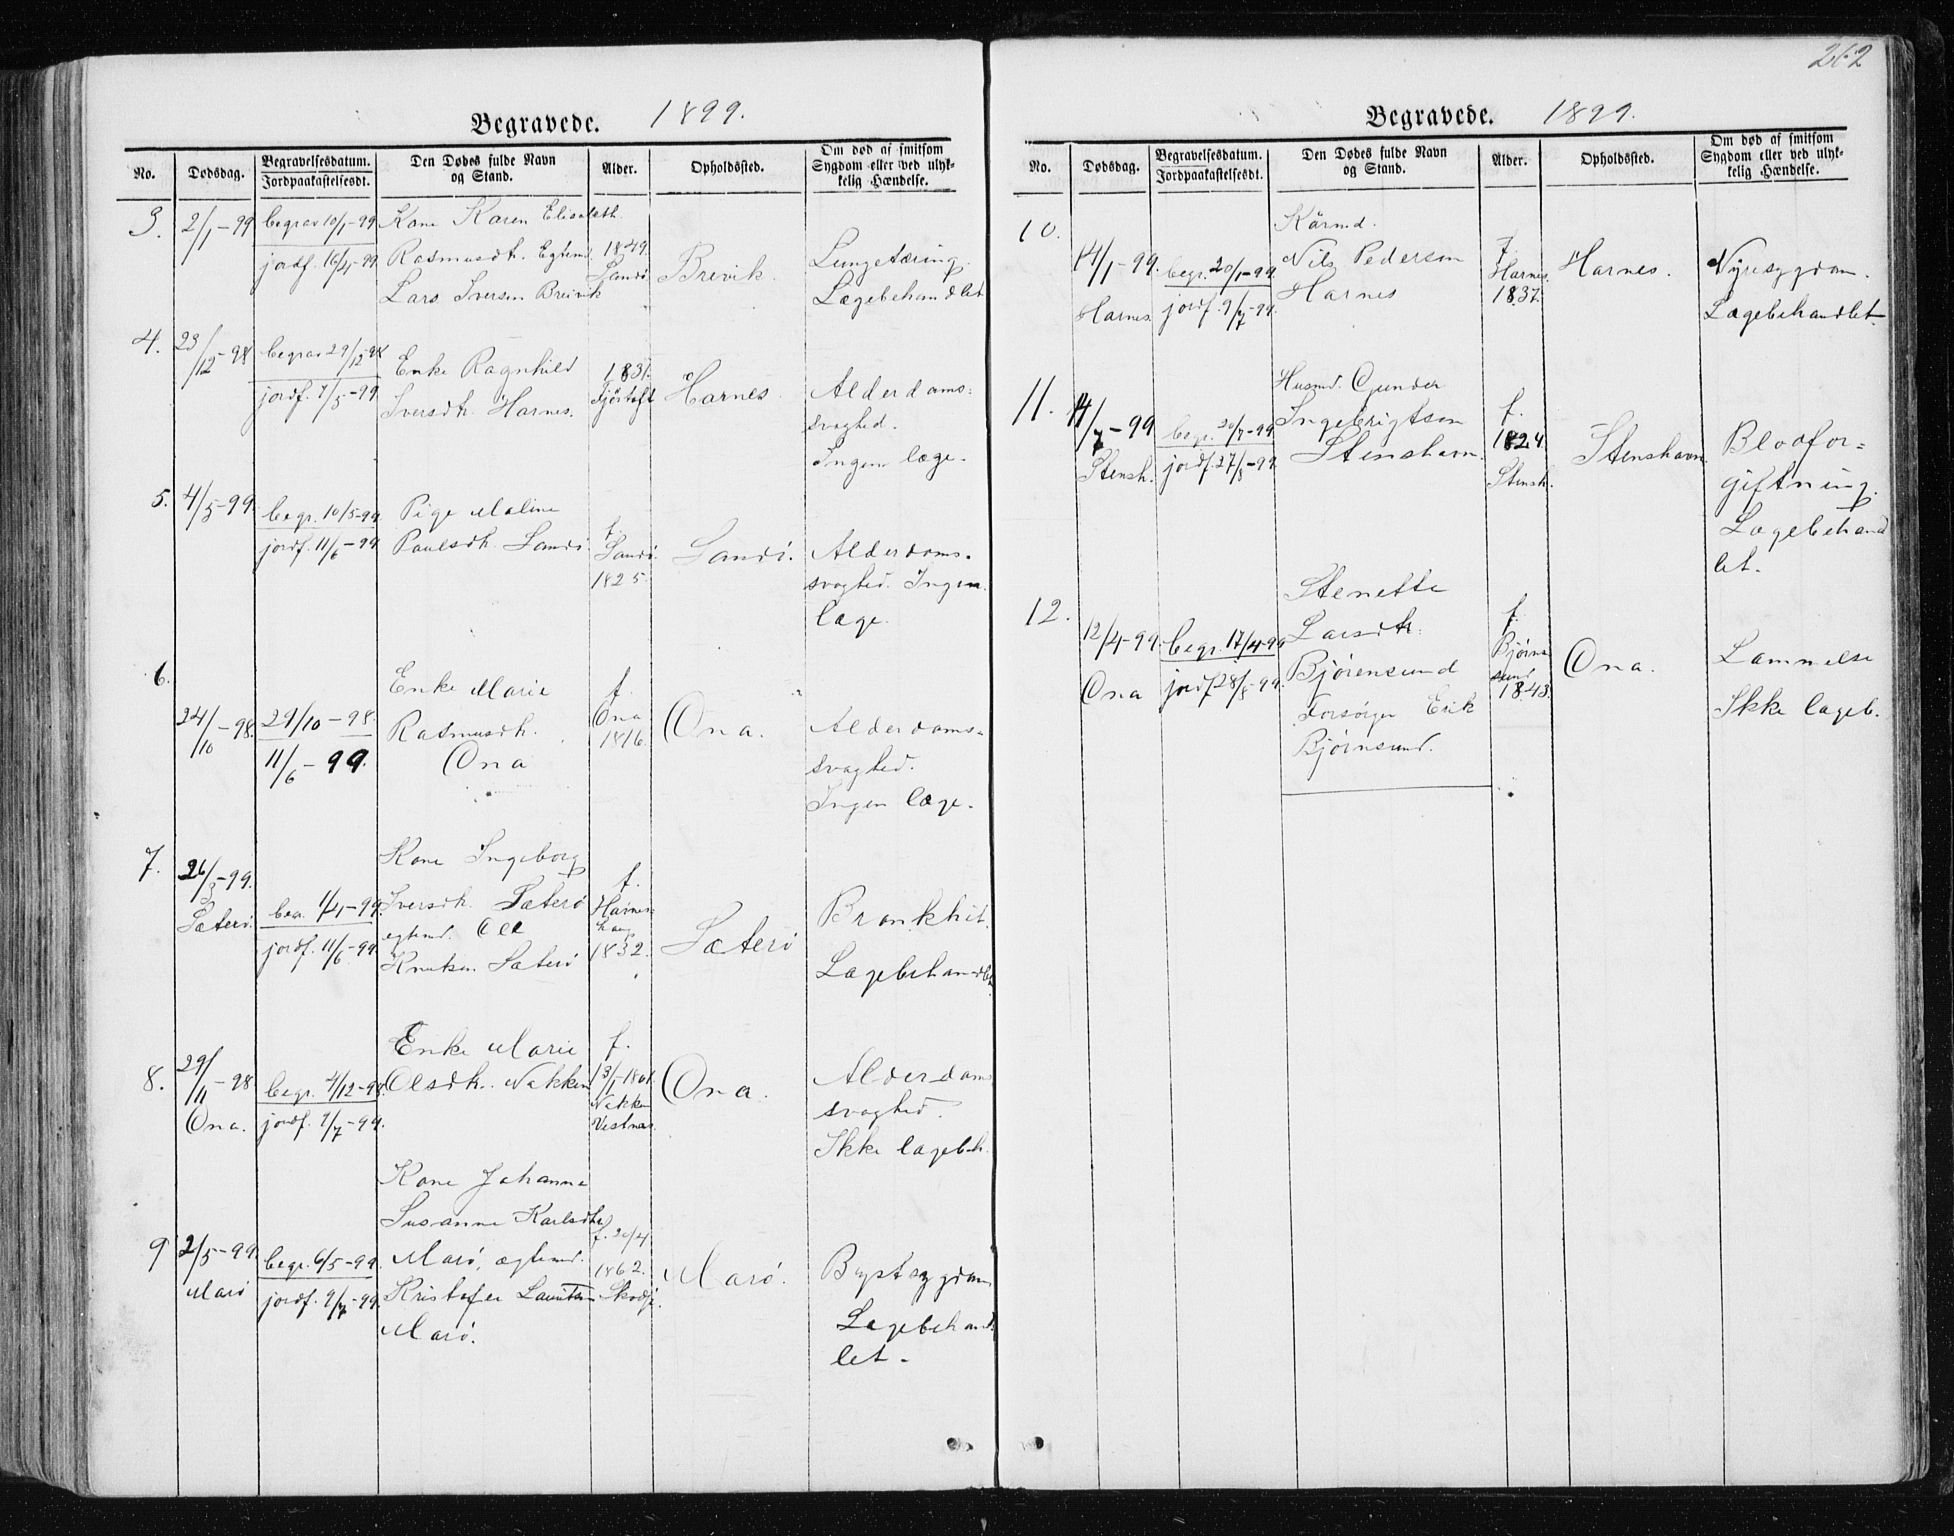 262
Begravede. 1899.
No.
Dødsdag.
Begravelsesdatum.
Jordpaakastelsesdt.
Den Dødes fulde Navn
og Stand.
Alder.
Opholdssted.
Om død af smitsom
Sygdom eller ved ulyk-
kelig Hændelse.
3.
2/1-99
begrav 10/1-99
jordf. 16/4-99
Kone Karen Elisabeth
Rasmusdtr. Egtemd
Lars Iversen Breivik
1849.
Sandö
Brevik.
Lungetæring.
Lægebehandlet
4.
23/12-98
begrav 29/12-98
jordf. 7/5-99
Enke Ragnhild
Iversdtr. Harnes.
1831.
Fjörtoft
Harnes.
Alderdoms=
svaghed.
Ingen læge.
5.
4/5-99.
begr. 10/5-99
jordf. 11/6-99
Pige Maline
Paulsdtr. Sandö
f.
Sandö.
1825.
Sandö.
Alderdoms.
svaghed. Ingen
læge.
6.
24/10-98.
29/10-98.
11/6-99.
Enke Marie
Rasmusdtr.
Ona
f.
Ona
1816.
Ona.
Alderdoms=
svaghed.
Ingen læge.
7.
26/3-99.
Sæterö.
begr. 1/4-99.
jordf. 11/6-99.
Kone Ingeborg
Iversdtr. Sæterö
egtemd. Ole
Knutsen Sæterö
f.
Harnes=
haug
1832.
Sæterö
Bronkhit.
Lægebehandlet
8.
29/11-98
Ona.
begr. 4/12-98.
jordf. 9/7-99.
Enke Marie
Olsdtr. Nakken
f.
13/1-1801.
Nakken
Vestnæs.
Ona.
Alderdoms
svaghed.
Ikke lægebeh.
9
2/5-99.
Marö
begr. 6/5-99.
jordf. 9/7-99.
Kone Johanna
Susanna Karlsdtr
Marö, ægtemd.
Kristofer Lauritsen
Marö.
f. 20/4
1862.
Skodje.
Marö.
Brystsygdom
Lægebehand
let.
Begravede. 1899.
No.
Dødsdag.
Begravelsesdatum.
Jordpaakastelsesdt.
Den Dødes fulde Navn
og Stand.
Alder.
Opholdssted.
Om død af smitsom
Sygdom eller ved ulyk-
kelig Hændelse.
10.
14/1-99.
Harnes.
begr. 20/1-99
jordf. 9/7-99.
Kårmd.
Nils Pedersen
Harnes
f.
Harnes.
1837.
Harnes.
Nyresygdom.
Lægebehandlet.
11.
14/7-99
Stensh.
begr. 20/7-99
jordf. 27/8-99
Husmd. Gunder
Ingebrigtsen
Stenshavn.
f.
1824.
Stensh.
Stenshavn.
Blodfor=
giftning.
Lægebehand
let.
12.
12/4-99.
Ona
begr. 17/4-99
jordf 28/8-99.
Stenette
Larsdtr.
Bjørensund
Forsørger Erik
Bjørnsund.
f.
Bjørn
sund
1843.
Ona.
Lammelse
Ikke lægeb.